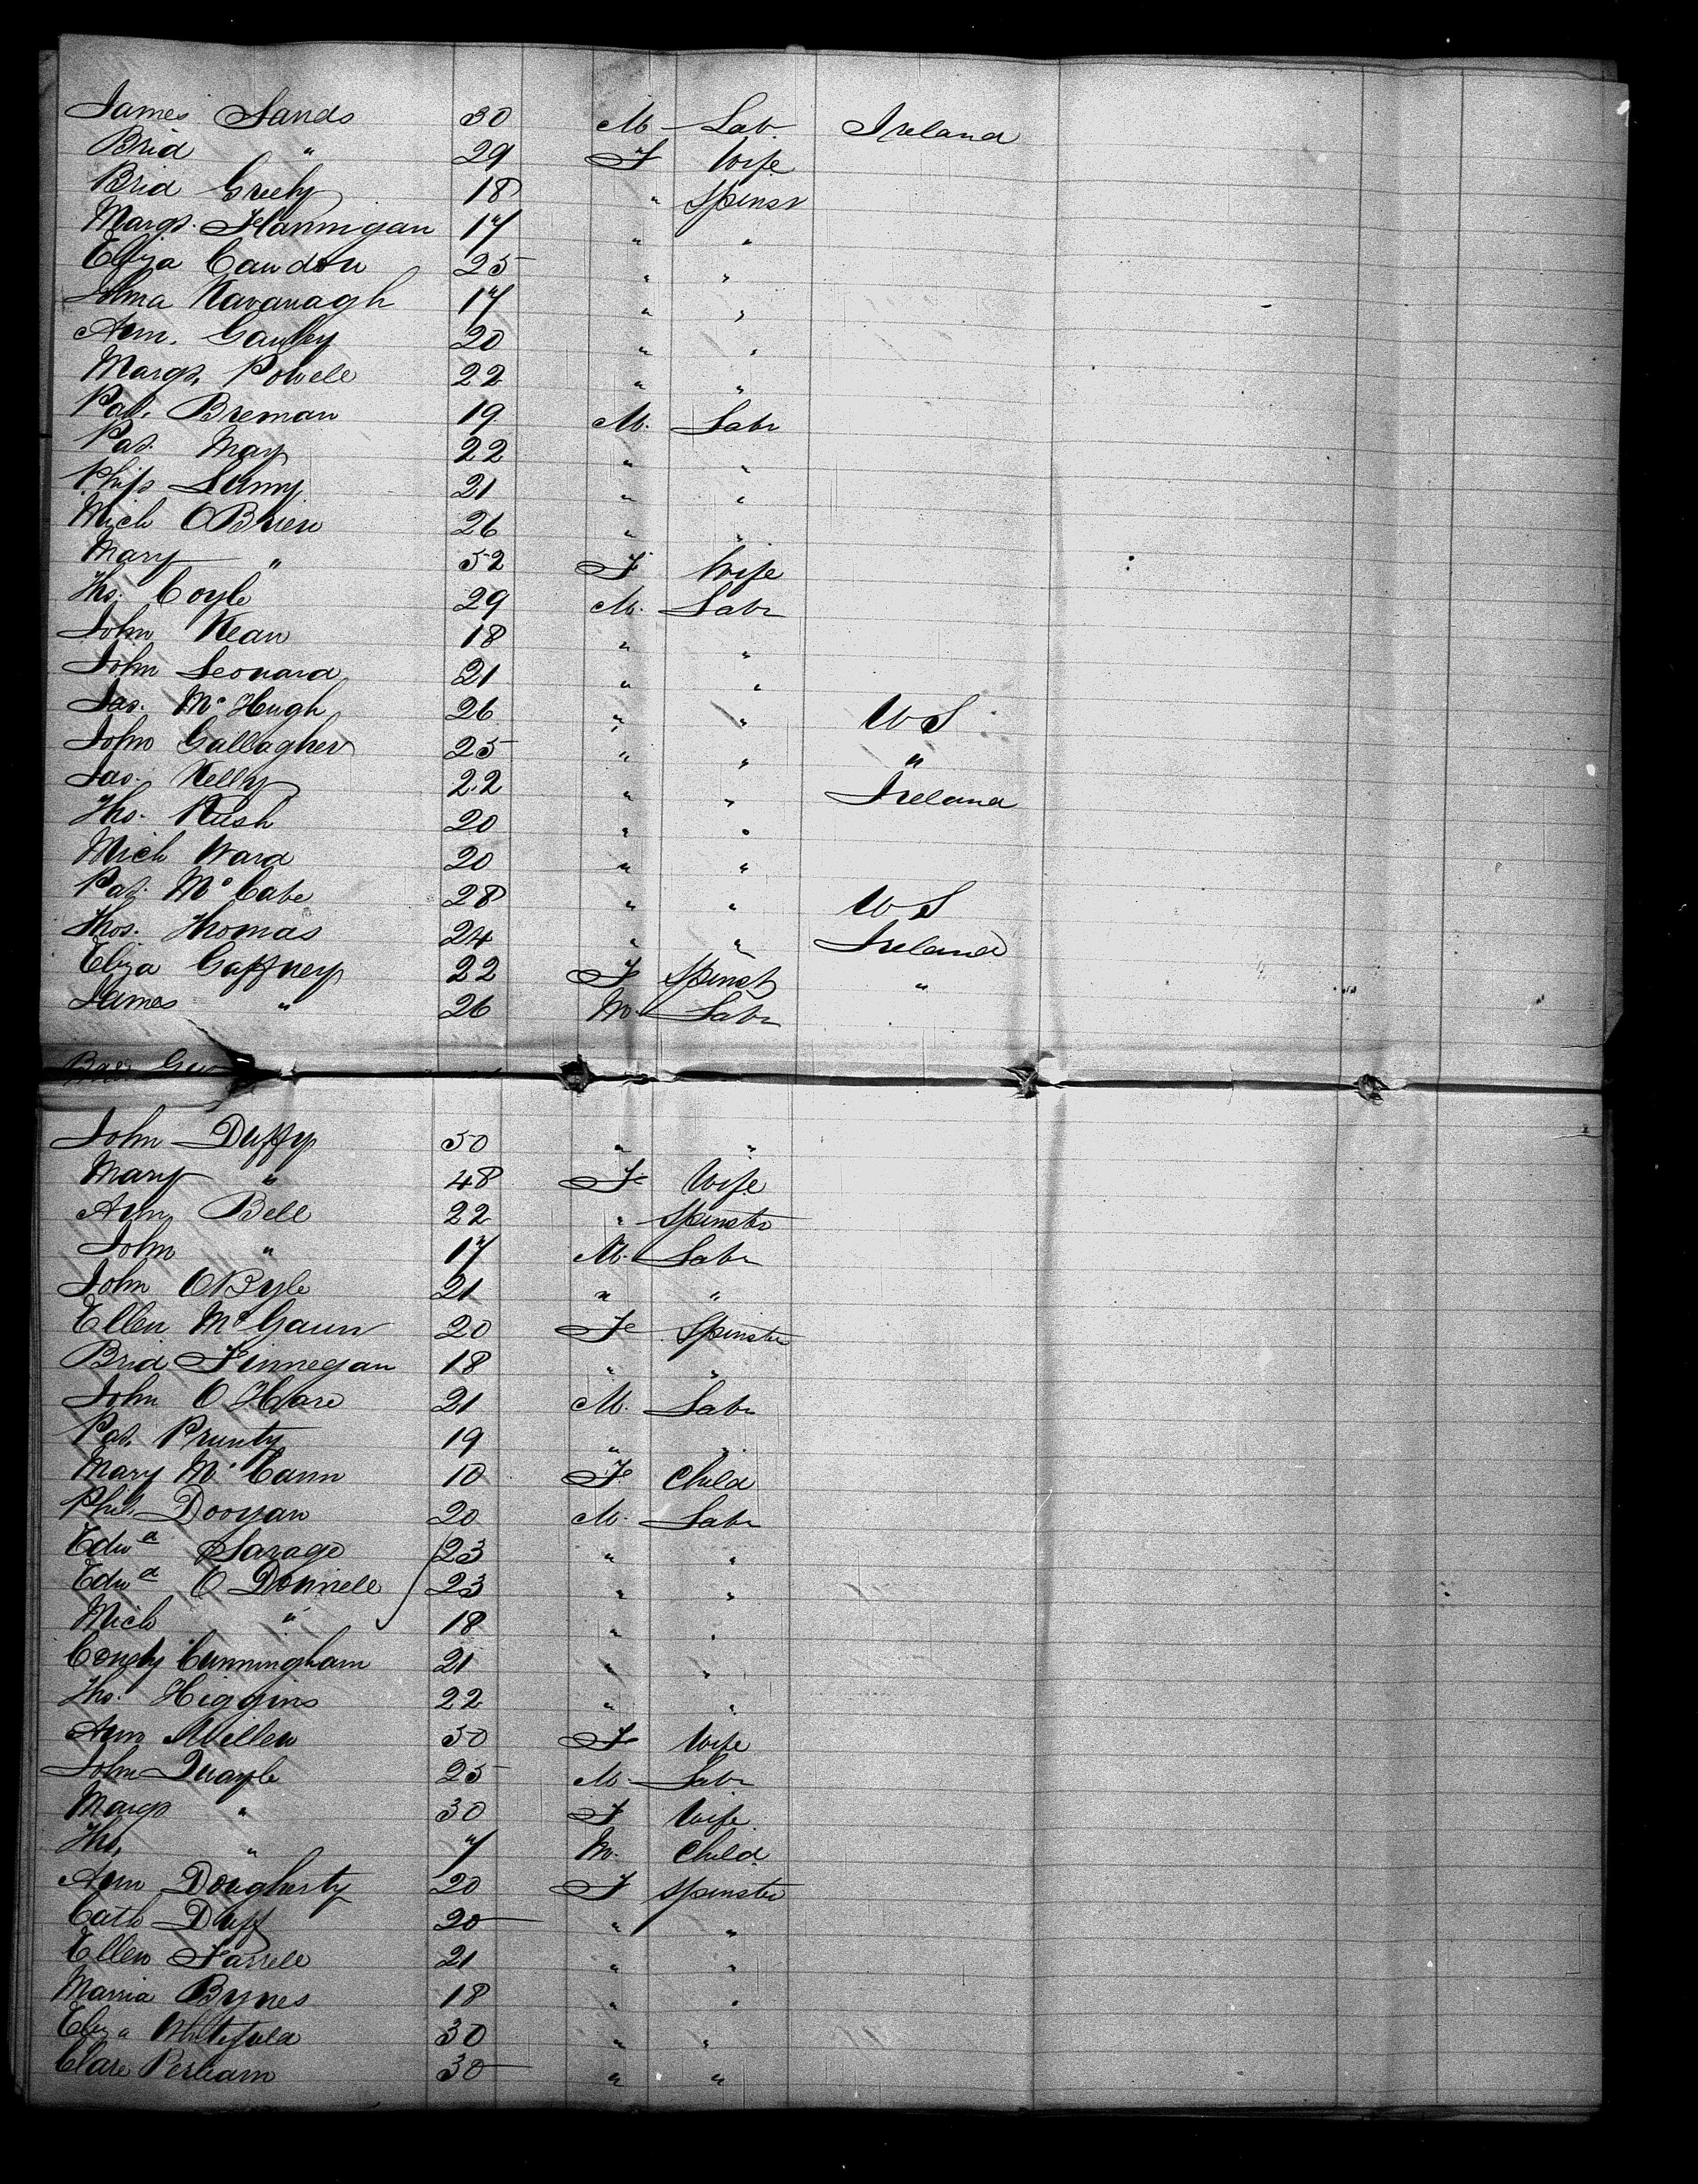 James Sands 30 M Lab. Ireland
Brid " 29 F Wife
Brid Greely 18 " Spinsr
Margt. Flannigan 17 " "
Eliza Caudon 25 " "
Kavanagh 17 " "
Ann. Gaulby 20 " "
Margt. Powell 22 " "
Pat. Breman 19 M. Labr
Pat. May 22 " "
21 " "
Mich OBrien 26 " "
Mary " 52 F Wife
Ths. Coyle 29 M. Labr
John Kean 18 " "
John Leonard 21 " "
Jas. Mc Hugh 26 " " U S
John Gallagher 25 " " "
Jas. Kelly 22 " " Ireland
Ths. Rush 20 " "
Mich Ward 20 " "
Pat. Mc Cabe 28 " " U S
Thos. Thomas 24 " " Ireland
Eliza Gaffney 22 F Spinst "
James " 26 M. Labr
John Duffy 50 " "
Mary " 48 F Wife
Ann Bell 22 " Spinstr
John " 17 M. Labr
John OByle 21 " "
Ellen Mc Gaun 20 F Spinster
Brid Finnegan 18 " "
John O Hare 21 M. Labr
Pat. Prunty 19 " "
Mary Mc Cann 10 F Child
Phil. Dooyan 20 M. Labr
Edwd Savage 23 " "
Edwd O Donnell 23 " "
Mich " 18 " "
Condy Cunningham 21 " "
Ths. Higgins 22 " "
Ann Millen 50 F Wife
John Quayle 25 M. Labr
Margt " 30 F Wife
Ths. " 7 M. Child
Ann Dougherty 20 F Spinster
Cath Duff 20 " "
Ellen Farrell 21 " "
Maria Bynes 18 " "
Eliza Whitefield 30 " "
Clare Perham 30 " "